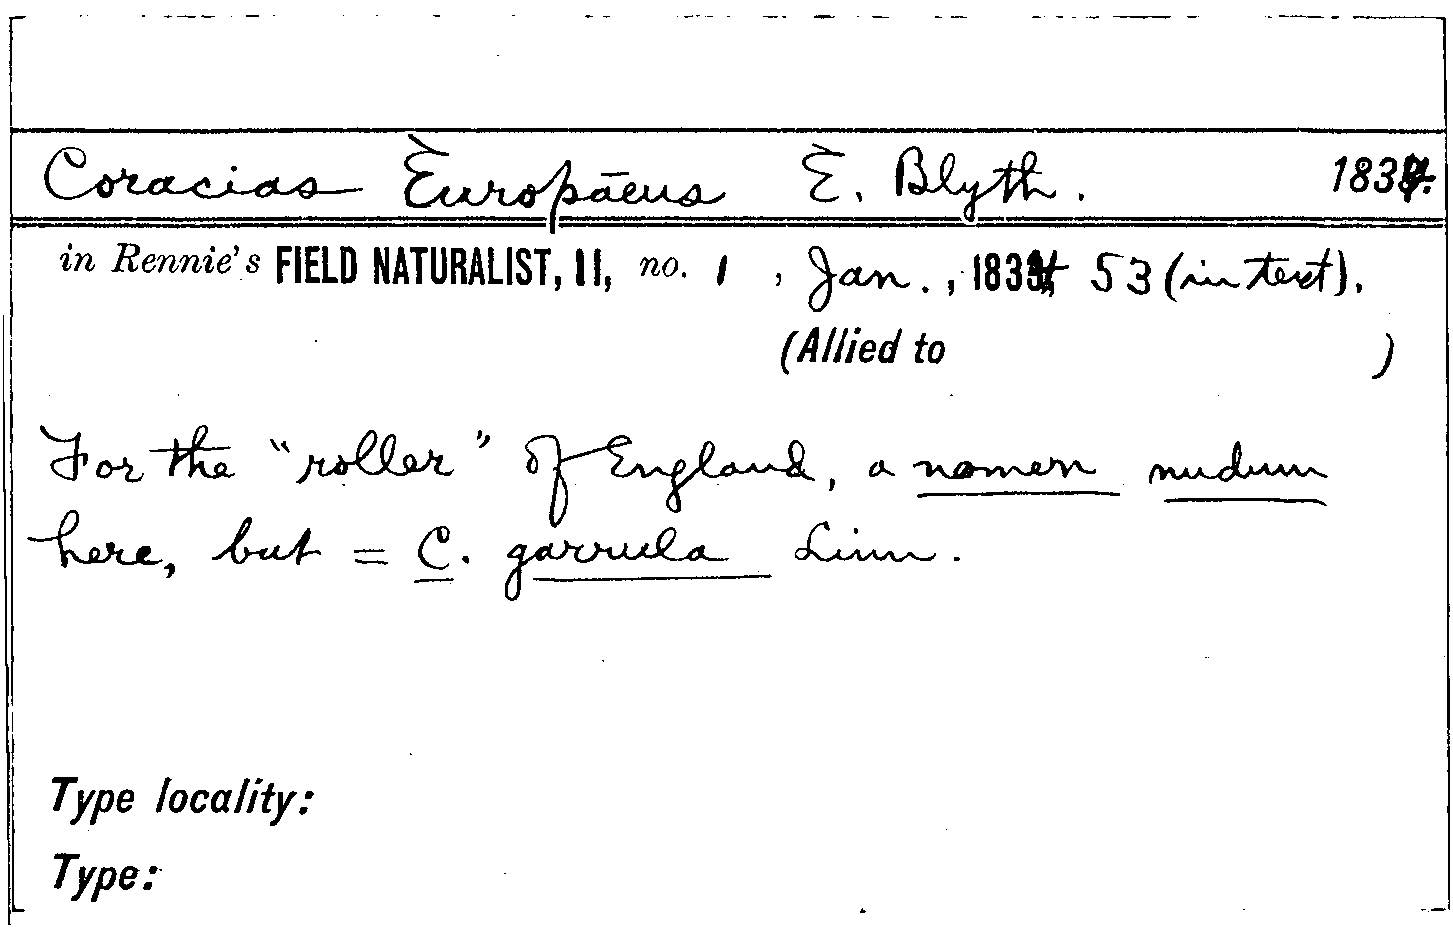 Coracias Europāeus E. Blyth. 1834.
in Rennie's FIELD NATURALIST, II, no. 1, Jan., 1834 53 (in text).
(Allied to )
For the "roller" of England, a nomen nudum
here, but = C. garrula Linn.
Type locality:
Type: